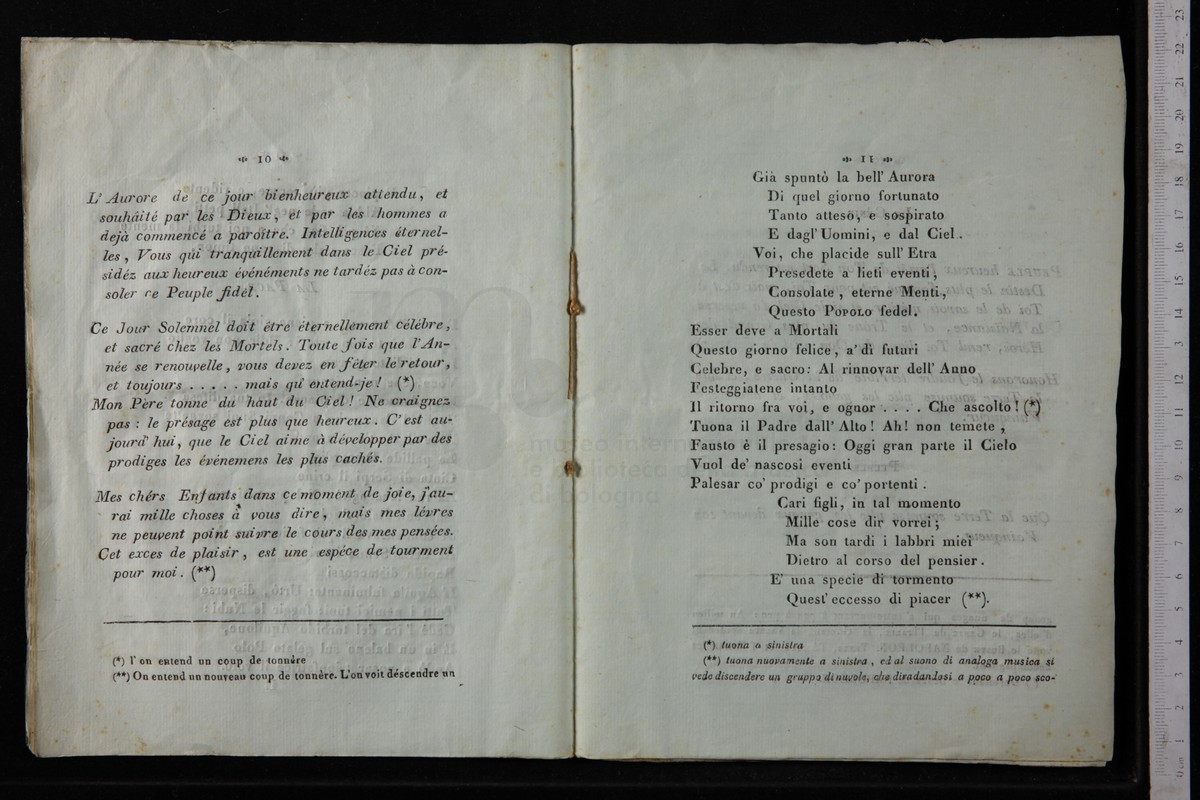 10
L'Aurore de ce jour bienheureux attendu, et
souháité par les Dieux, et par les hommes a
dejà commencé a paroître. Intelligences éternel-
les, Vous qui tranquillement dans le Ciel pré-
sidéz aux heureux événéments ne tardéz pas à con-
soler ce Peuple fidél.
Ce Jour Solemnel doit être éternellement célébre,
et sacré chez les Mortels. Toute fois que l'An-
née se renouvelle, vous devez en fêter le retour,
et toujours . . . . . mais qu' entend-je! (*)
Mon Père tonne du haut du Ciel! Ne craignez
pas : le présage est plus que heureux. C'est au-
jourd' hui, que le Ciel aime à développer par des
prodiges les événemens les plus cachés.
Mes chérs Enfants dans ce moment de joie, j'au-
rai mille choses à vous dire, mais mes lévres
ne peuvent point suivre le cours des mes pensées.
Cet exces de plaisir, est une espéce de tourment
pour moi. (**)
(*) l' on entend un coup de tonnère
(**) On entend un nouveau coup de tonnère. L'on voit déscendre un
11
Già spuntò la bell' Aurora
Di quel giorno fortunato
Tanto atteso, e sospirato
E dagl' Uomini, e dal Ciel.
Voi, che placide sull' Etra
Presedete a lieti eventi,
Consolate, eterne Menti,
Questo POPOLO fedel.
Esser deve a Mortali
Questo giorno felice, a' dì futuri
Celebre, e sacro: Al rinnovar dell' Anno
Festeggiatene intanto
Il ritorno fra voi, e ognor . . . . Che ascolto! (*)
Tuona il Padre dall' Alto! Ah! non temete,
Fausto è il presagio: Oggi gran parte il Cielo
Vuol de' nascosi eventi
Palesar co' prodigi e co' portenti.
Cari figli, in tal momento
Mille cose dir vorrei;
Ma son tardi i labbri miei
Dietro al corso del pensier.
E' una specie di tormento
Quest' eccesso di piacer (**).
(*) tuona a sinistra
(**) tuona nuovamente a sinistra, ed al suono di analoga musica si
vede discendere un gruppo di nuvole, che diradandosi a poco a poco sco-